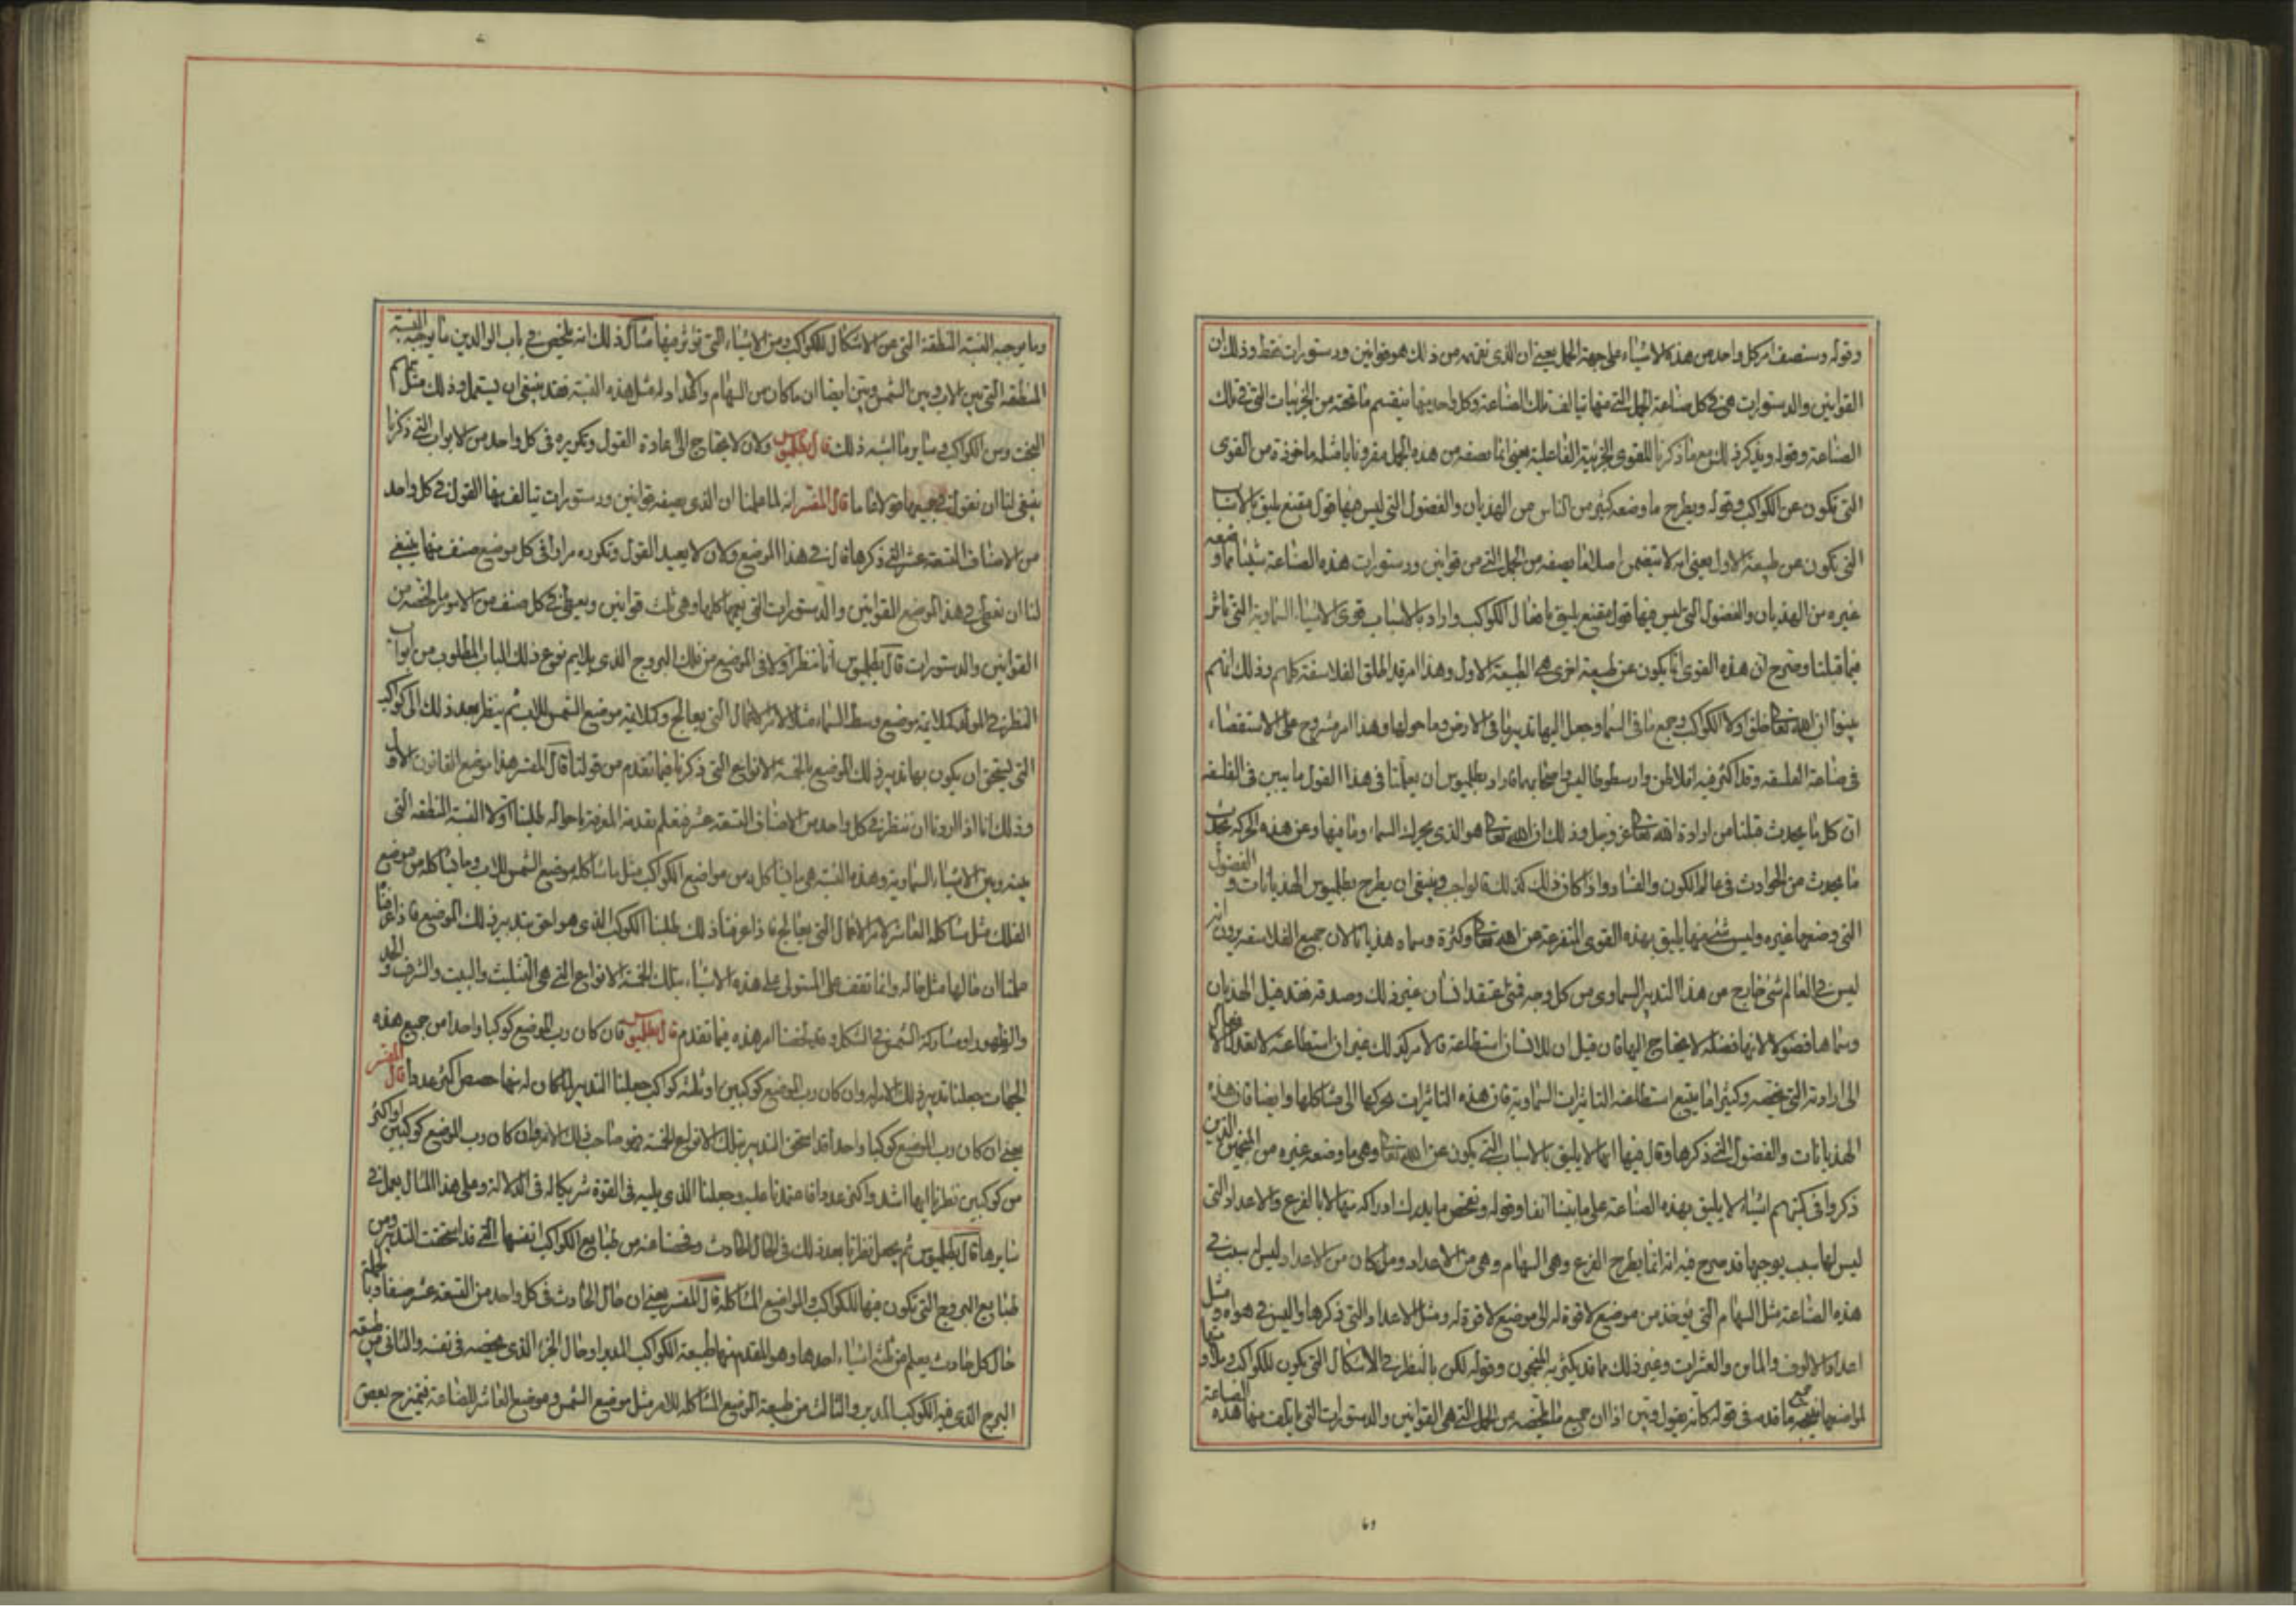 وقوله وسنصف امر كل واحد من هذه الاشياء على جهة الجمل يعني ان الذي نفهمه من ذلك هو قوانين ودستورات فقط وذلك ان
القوانين والدستورات هي في كل صناعة الجمل التي منها تتالف تلك الصناعة وكل واحد منها ينقسم ما تحته من الجزئيات التي في تلك
الصناعة وقوله ويذكر ذلك مع ما ذكرنا للقوى الجزئية الفاعلية يعني انما نصفه من هذه الجمل مقرونا بامثله ماخوذة من القوى
التي تكون عن الكواكب وقوله ويطرح ما وضعه كثير من الناس من الهذيان والفضول التي ليس فيها قول مقنع يليق بالاسباب
التي تكون عن طبيعة الاول يعني انه لا يتضمن اصلا فيما يصفه من الجمل التي من قوانين ودستورات هذه الصناعة شيئا مما وضعه
غيره من الهذيان والفضول التي ليس فيها قول مقنع يليق بافعال الكواكب واراد بالاسباب قوى الاشياء السماوية التي تاثر
فيما قبلنا وصرح ان هذه القوى انما يكون عن طبيعة اخرى هي الطبيعة الاول وهذا امر قد اطلق الفلاسفة كلهم وذلك انهم
بينوا ان الله تعالى خلق اولا الكواكب وجميع ما في السماء وجعل اليها تدبير ما في الارض وما حولها وهذا امر مشروح على الاستقصاء
في صناعة الفلسفة وقد اكثر فيه افلاطن وارسطوطاليس واصحابهما فاراد بطلميوس ان يعلمنا في هذا القول ما يبين في الفلسفة
ان كل ما يحدث قبلنا من ارادة الله تعالى عز وجل وذلك ان الله تعالى هو الذي يحرك السماء وما فيها وعن هذه الحركة يحدث
ما يحدث من الحوادث في عالم الكون والفساد واذا كان ذلك كذلك فالواجب وينبغي ان يطرح بطلميوس الهذيانات والفضول
التي وضعها غيره وليس شيء منها يليق بهذه القوى المتفرعة من الله تعالى وكثرة وسماه هذيانا لان جميع الفلاسفة يرون انه
ليس في العالم شئ خارج من هذا التدبير السماوي من كل وجه فمتى اعتقد انسان غير ذلك وصدقه فقد قبل الهذيان
وسماها فضولا لانها فضلة لا يحتاج اليها فان قيل ان للانسان استطاعة فالامر كذلك غير ان استطاعته لا تقدر
الى ارادته التي تخصه وكثيرا ما يتبع استطاعته التاثيرات السماوية فان هذه التاثيرات تحركها الى مشاكلها وايضا فان هذه
الهذيانات والفضول التي ذكرها وقال فيها انها لا يليق بالاسباب التي يكون عن الله تعالى وهي ما وضعه غيره من المنجمين الذين
ذكروا في كتبهم اشياء لا يليق بهذه الصناعة على ما بينا انفا وقوله ونفحص ما يدرك ادراكه منها لا بالقرع والاعداد التي
ليس لها سبب يوجبها قد صرح فيه انه انما يطرح القرع وهي السهام وهي من الاعداد وما كان من الاعداد ليس له سبب في
هذه الصناعة مثل السهام التي يوخذ من موضع لا قوة له الى موضع لا قوة له ومثل الاعداد التي ذكرها واليس في هواه ومثل
اعداد الالوف والماس والعشرات وغير ذلك مما قد يكثر به المنجمون وقوله لكن بالنظر في الاشكال التي يكون للكواكب
لمواضعها جميع ما قدمه في قوله كانه يقول وتبين اذا ان جميع ما يلخصه من الجمل التي هي القوانين والدستورات التي يالف منها هذه الصناعة
وما يوجبه النسبة المنطقية التي من الاشكال للكواكب ومن الاشياء التي تؤثر فيها مثال ذلك انه يلخص في باب الوالدين ما يوجبه النسبة
المنطقية التي بين الاب وبين الشمس وتبين ايضا ان ما كان من السهام والاعداد له مثل هذه النسبة فقد ينبغي ان يستعمل وذلك مثل سهم
البخت ومن الكواكب وسايرها اشبه ذلك قال بطلميوس ولان لا يحتاج الى اعادة القول وتكريره في كل واحد من الابواب التي ذكرنا
ينبغي لنا ان نقول في جميعها قولا عاما قال المفسر انه لما علمنا ان الذي يصفه قوانين ودستورات يتالف منها القول في كل واحد
من الاصناف التسعة عشر التي ذكرها قال في هذا الموضع ولان لا يعيد القول وتكرره مرارا في كل موضع صنف منها ينبغي
لنا ان نعطي في هذا الموضع القوانين والدستورات التي يعمها كلها وهي تلك قوانين ويعطي في كل صنف من الامور ما يخصه من
القوانين والدستورات قال بطلميوس انا ننظر اولا في الموضع من فلك البروج الذي يلايم نوع ذلك الباب المطلوب من ابواب
النظر في المواليد كملايمة موضع وسط السماء مثلا لامر الاعمال التي يعالج وكملايمة موضع الشمس للاب ثم ينظر بعد ذلك الى كواكب
التي يستحق ان يكون بها تدبير ذلك الموضع بالخمسة الانواع التي ذكرنا فيما تقدم من قولنا قال المفسر هذا موضع القانون الاول
وذلك انا اذا اردنا ان ننظر في كل واحد من الاصناف التسعة عشر فنعلم بتقدمة المعرفة باحواله طلبنا اولا النسبة المنطقية التي
بينه وبين الاشياء السماوية وهذه النسبة هي ما يشاكله من مواضع الكواكب مثل ما شاكله موضع الشمس للاب وما يشاكله من موضع
الفلك مثل مشاكلة العاشر لامر الاعمال التي يعالج فاذا عرفنا ذلك طلبنا الكوكب الذي هو احق بتدبير ذلك الموضع فاذا عرفنا
علمنا ان حالها مثل حاله وانما تقف على المستولي على هذه الاشياء بتلك الخمسة الانواع التي هي التثليث والبيت والشرف والحد
والظهور او مشاركة الشمس في الشكل وقد لخصنا امر هذه فيما تقدم قال بطلميوس فان كان رب الموضع كوكبا واحدا من جميع هذه
الجهات جعلنا تدبير ذلك الامر له وان كان رب الموضع كوكبين او ثلثة كواكب جعلنا التدبير لما كان له منها حصص اكثر عددا قال المفسر
يعني ان كان رب الموضع كوكبا واحدا قد استحق التدبير بتلك الانواع الخمسة فهو صاحب ذلك الامر وان كان رب الموضع كوكبين او اكثر
من كوكبين نظرنا ايها اشد واكثر عددا فاعتمدنا عليه وجعلنا الذي يليه في القوة شريكا له في الدلالة وعلى هذا المثال يعمل في
سايرها قال بطلميوس ثم يجعل نظرنا بعد ذلك في الحال الحادث وفحصنا عنه من طبايع الكواكب انفسها التي قد استحقت التدبير ومن
طبايع البروج التي تكون فيها الكواكب والمواضع المشاكلة قال المفسر يعني ان حال الحادث في كل واحد من التسعة عشر صنفا وبالجملة
حال كل حادث يعلم من ثلثة اشياء احدها وهو المقدم منها طبيعة الكواكب المدبر او حال الجزء الذي يخصه في نفسه والثاني من طبيعة
البرج الذي فيه الكوكب المدبر والثالث من طبيعة الموضع المشاكلة للامر مثل موضع الشمس وموضع العاشر للصناعة فيمتزج بعض